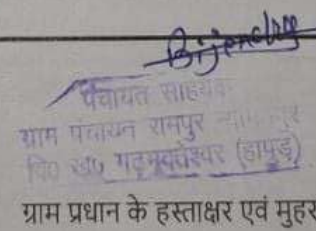 Bijendra
पंचायत सहायक
ग्राम पंचायत रामपुर
वि० ख० गढ़मुक्तेश्वर (हापुड़)
ग्राम प्रधान के हस्ताक्षर एवं मुहर